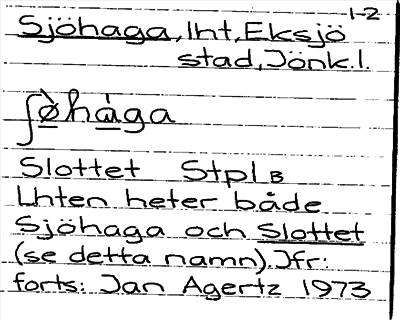 1-2
Sjöhaga, lht, Eksjö
stad, Jönk.l.
ʃø̀hàga
Slottet StplB
Lhten heter både
Sjöhaga och Slottet
(se detta namn). Jfr:
forts: Jan Agertz 1973